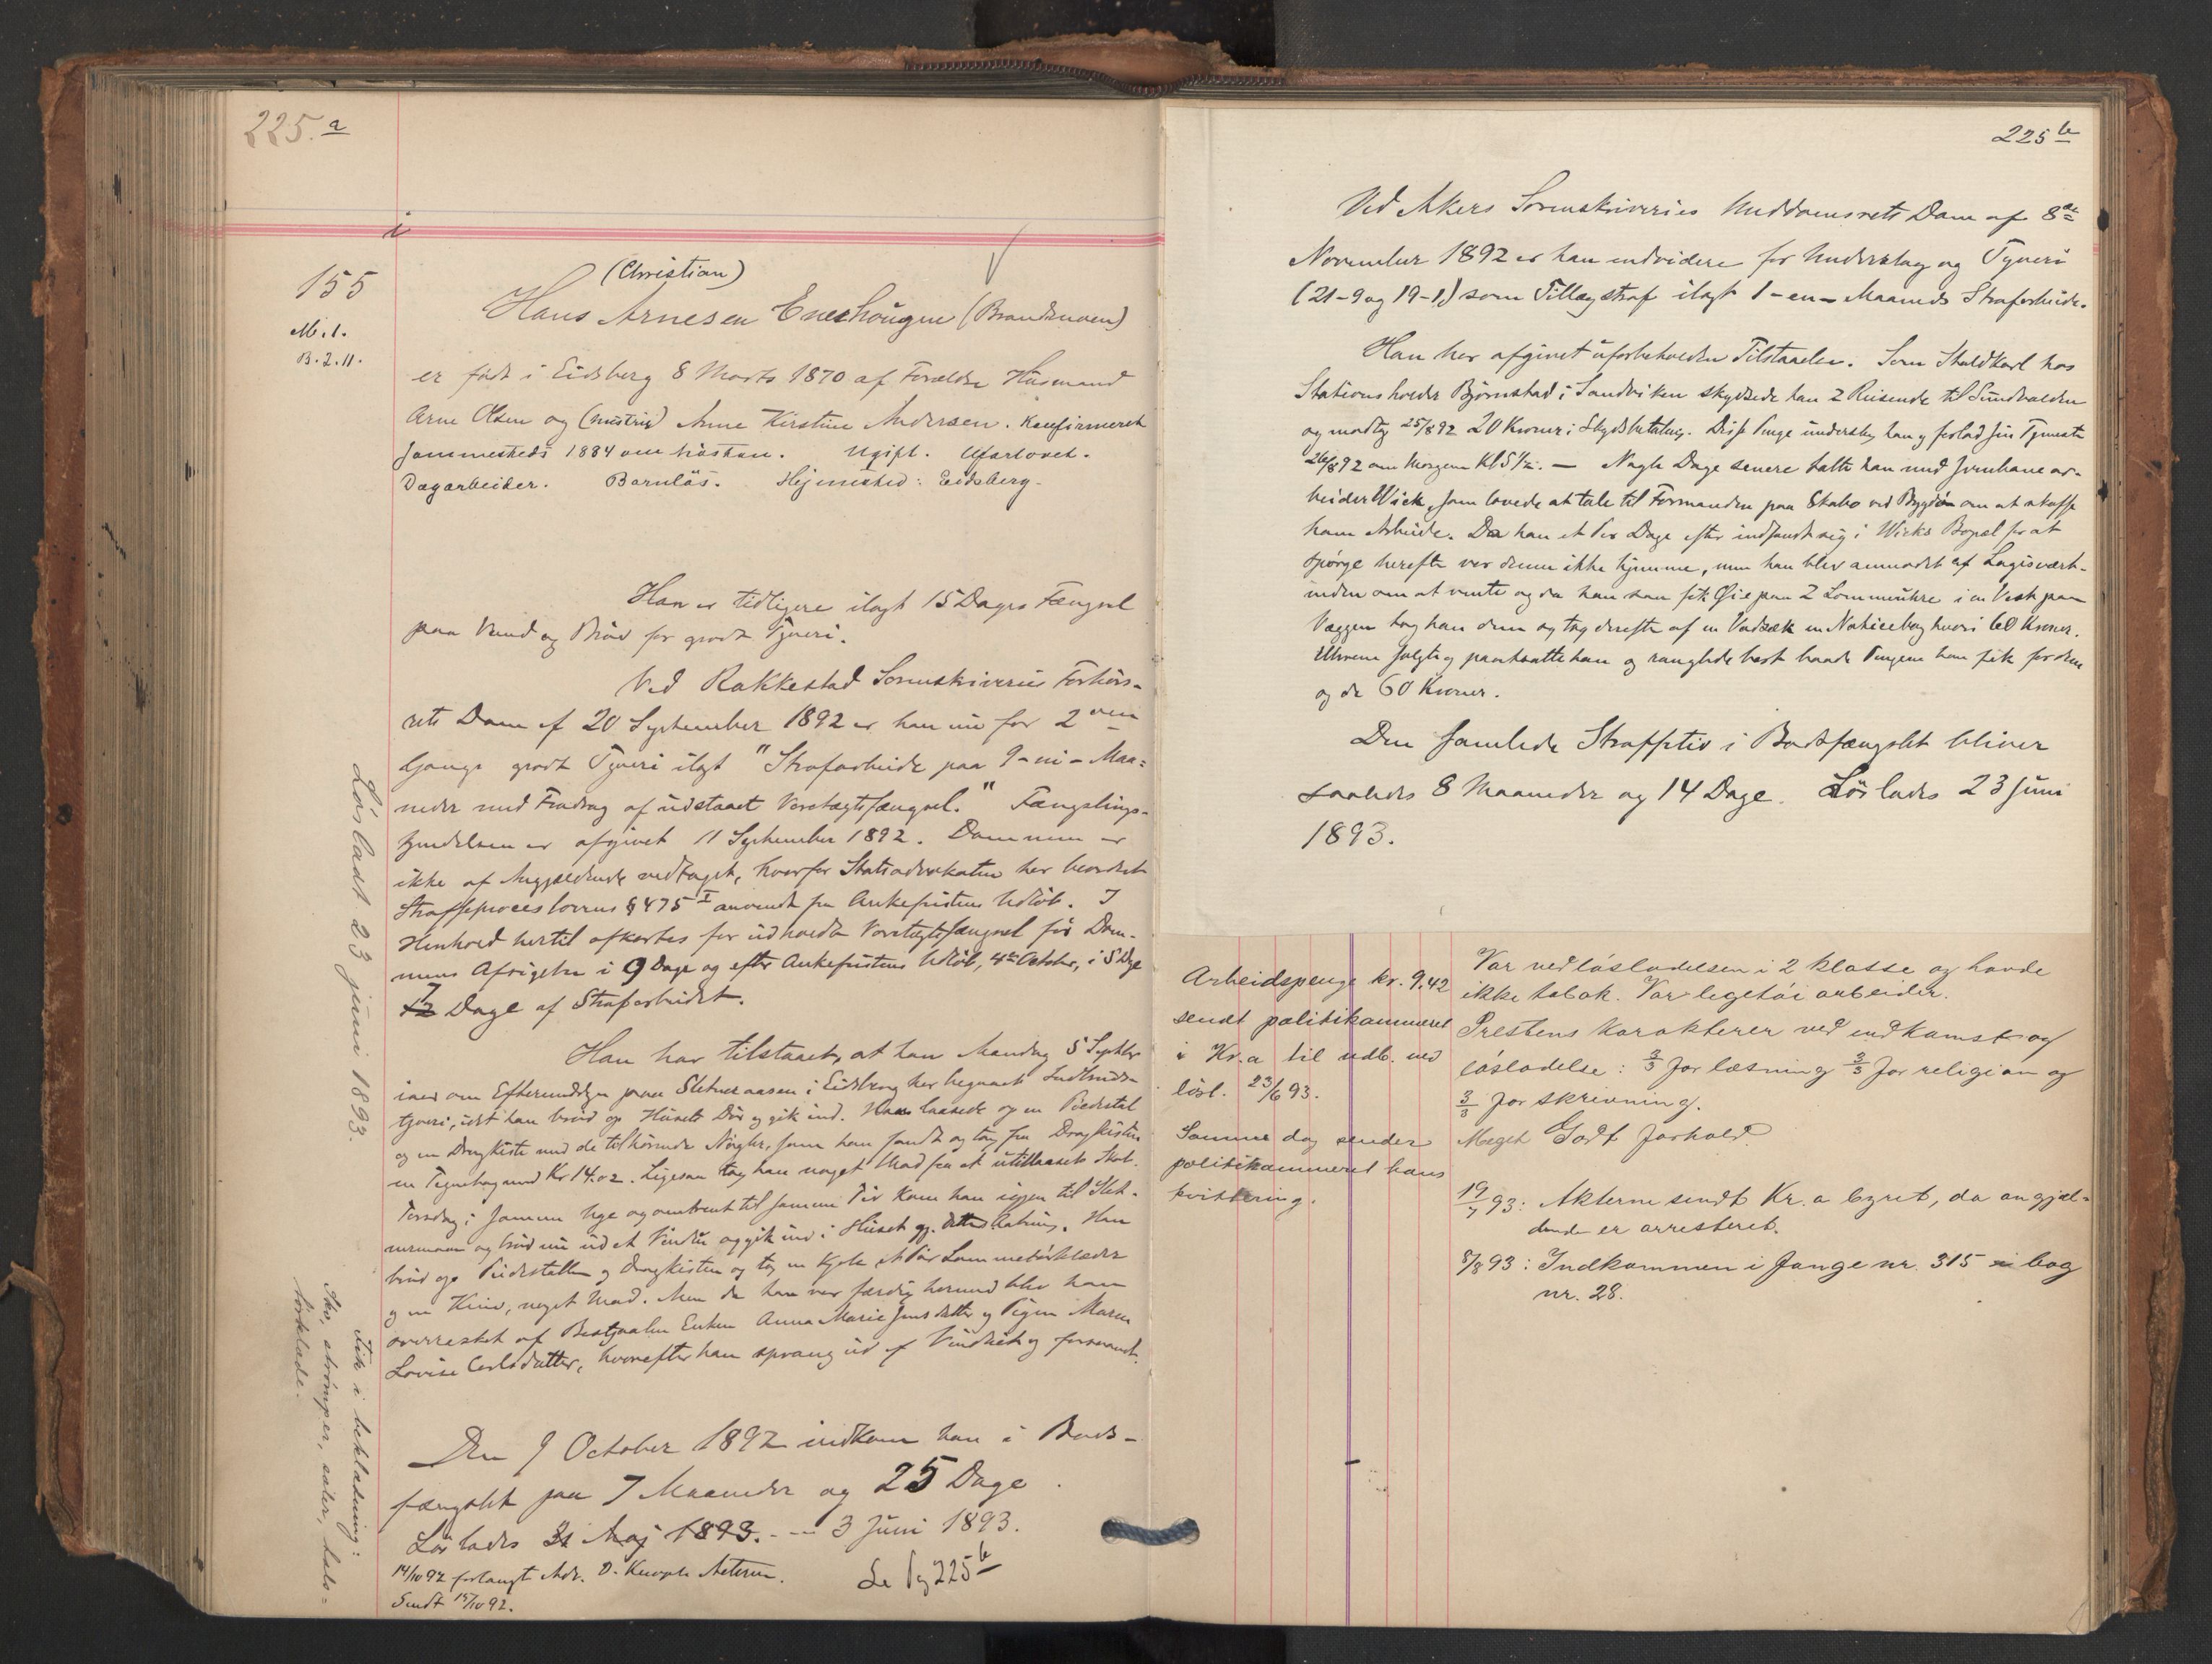 225.a
i
155
M.1.
B.2.11.
(Christian)
Hans Arnesen Enerhaugen (Brandmoen)
er født i Eidsberg 8 Marts 1870 af Forældre Husmand
Arne Olsen og (hustru) Anne Kirstine Andersen. Konfirmeret
sammesteds 1884 om høsten. Ugift. Uforlovet.
Dagarbeider. Barnløs. Hjemsted: Eidsberg.
Han er tidligere ilagt 15 Dages Fængsel
paa Vand og Brød for groft Tyveri.
Ved Rakkestad Sorenskriveries Forhørs-
rets Dom af 20 September 1892 er han nu for 2den
Gangs groft Tyveri ilagt "Strafarbeide paa 9-ni-Maa-
neder med Fradrag af udstaaet Varetægtsfængsel." Fængslings-
kjendelsen er afgivet 11 September 1892. Dommen er
ikke af Angjældende vedtaget, hvorfor Statsadvokaten har beordret
Straffeproceslovens § 475 I anvendt fra Ankefristens Udløb. I
Henhold hertil afkortes for udholdt Varetægtsfængsel før Dom-
mens Afsigelse i 9 Dage og efter Ankefristens Udløb, 4de October, i 5 Dge
7
12 Dage af Strafarbeidet.
Han har tilstaaet, at han Mandag 5 Septbr
iaar om Eftermiddagen paa Sletneraasen i Eidsberg har begaaet Indbruds-
tyveri, idet han brød op Husets Dør og gik ind. Han laasede op en Piedestal
og en Dragkiste med de tilhørende Nøgler, som han fandt og tog fra Dragkisten
en Tegnebog med Kr 14.02. Ligesaa tog han noget Mad fra et utillaaset Skab.
Torsdag i samme Uge og omtrent til samme Tid kom han igjen til Slet-
neraasen og brød nu ud et Vindu og gik ind i Huset gj. dette Aabning. Han
brød op Piedestallen og Dragkisten og tog en Kjole, et Par Lommetørklæder
og en Kniv, noget Mad. Men da han var færdig hermed blev han
overrasket af Bestjaalne Enken Anna Marie Jensdatter og Pigen Maren
Lovise Carlsdatter, hvorefter han sprang ud af Vinduet og forsvandt.
Den 9 October 1892 indkom han i Bods-
fængslet paa 7 Maaneder og 25 Dage.
Løslades 31 Maj 1893. -- 3 Juni 1893.
14/10 92 forlangt Adv. Akterne.
Sendt 14/10 92.
Se Pag 225 b
Løsladt 23 juni 1893.
Fik i beklædning:
Sko, strømper, sæler, hals-
tørklæde.
225 b
Ved Akers Sorenskriveries Meddomsrets Dom af 8de
November 1892 er han endvidere for Underslag og Tyveri
(21-9 og 19-1) som Tillægstraf ilagt 1-en-Maaneds Strafarbeide.
Han har afgivet uforbeholden Tilstaaelse. Som Staldkarl hos
Stationsholder Bjørnstad i Sandviken skydsede han 2 Reisende til Sundvolden
og modtog 25/8 92 20 Kroner i Skydsbetaling. Disse Penge underslog han og forlod sin Tjeneste
26/8 92 om Morgenen Kl 5 1/2. — Nogle Dage senere talte han med Jernbanear-
beider Wiek, som lovede at tale til Formanden paa Skabo ved Bygdø om at skaffe
ham Arbeide. Da han et Par Dage efter indfandt sig i Wieks Bopæl for at
spørge herefter var denne ikke hjemme, men han blev anmodet af Logisvært-
inden om at vente og da han saa fik Øie paa 2 Lommeuhre i en Vest paa
Væggen tog han dem og tog derefter af en Vadsæk en Noticebog hvori 60 Kroner.
Uhrene solgte og pantsatte han og ranglede bort baade Pengene han fik for dem
og de 60 Kroner.
Den samlede Straffetid i Bodsfængslet bliver
saaledes 8 Maaneder og 14 Dage. Løslades 23 Juni
1893.
Arbeidspenge kr. 9.42
sendt politikammeret
i Kr.a til udb. ved
løsl. 23/6 93.
Samme dag sender
politikammeret hans
kvittering.
Var ved løsladelsen i 2 klasse og havde
ikke tabak. Var legetøi arbeider.
Prestens karakterer ved indkomst og
løsladelse: 3/3 for læsning 3/3 for religion og
3/3 for skrivning.
Meget Godt forhold.
19/7 93: Akterne sendt Kr.a byret, da angjæl-
dende er arresteret.
8/8 93: Indkommen i fange nr. 315 i bog
nr. 28.